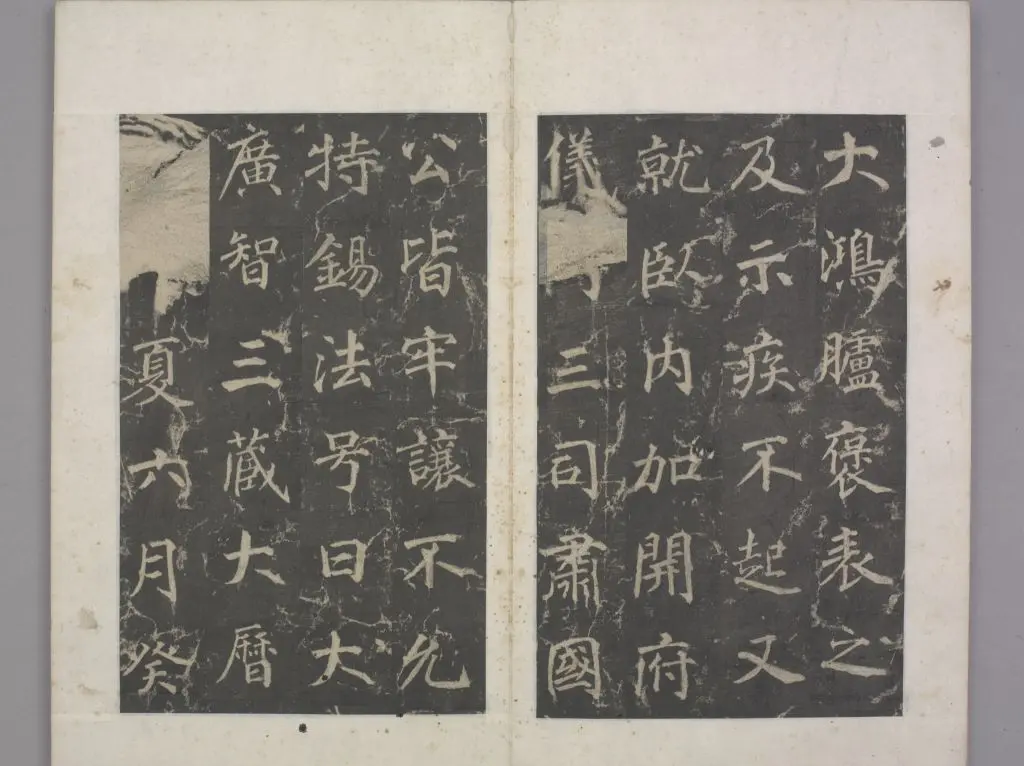 大鴻臚褒表之
及示疾不起又
就臥内加開府
儀三司肅國
公皆牢讓不允
特錫法号曰大
廣智三藏大曆
夏六月癸